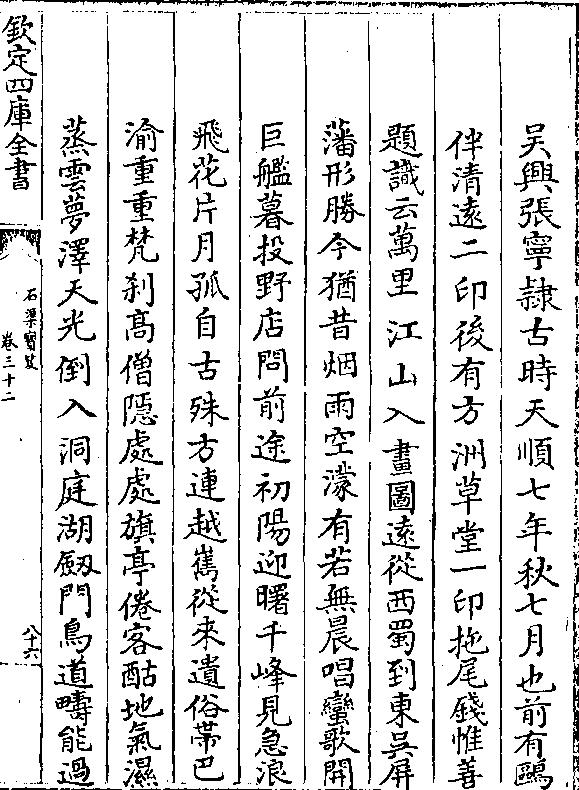 吴興張寧隷古時天順七年秋七月也前有鷗
伴清遠二印後有方洲草堂一印拖尾錢惟善
題識云萬里江山入畫圖遠從西蜀到東吳屏
藩形勝今猶昔烟雨空濛有若無晨唱蠻歌開
巨艦暮投野店問前途初陽迎曙千峰見急浪
飛花片月孤自古殊方連越嶲從來遺俗帶巴
渝重重梵刹髙僧隱處處旗亭倦客酤地氣濕
蒸雲夢澤天光倒入洞庭湖劔門鳥道疇能過
欽定四庫全書
石渠寶笈
卷三十二
八十六